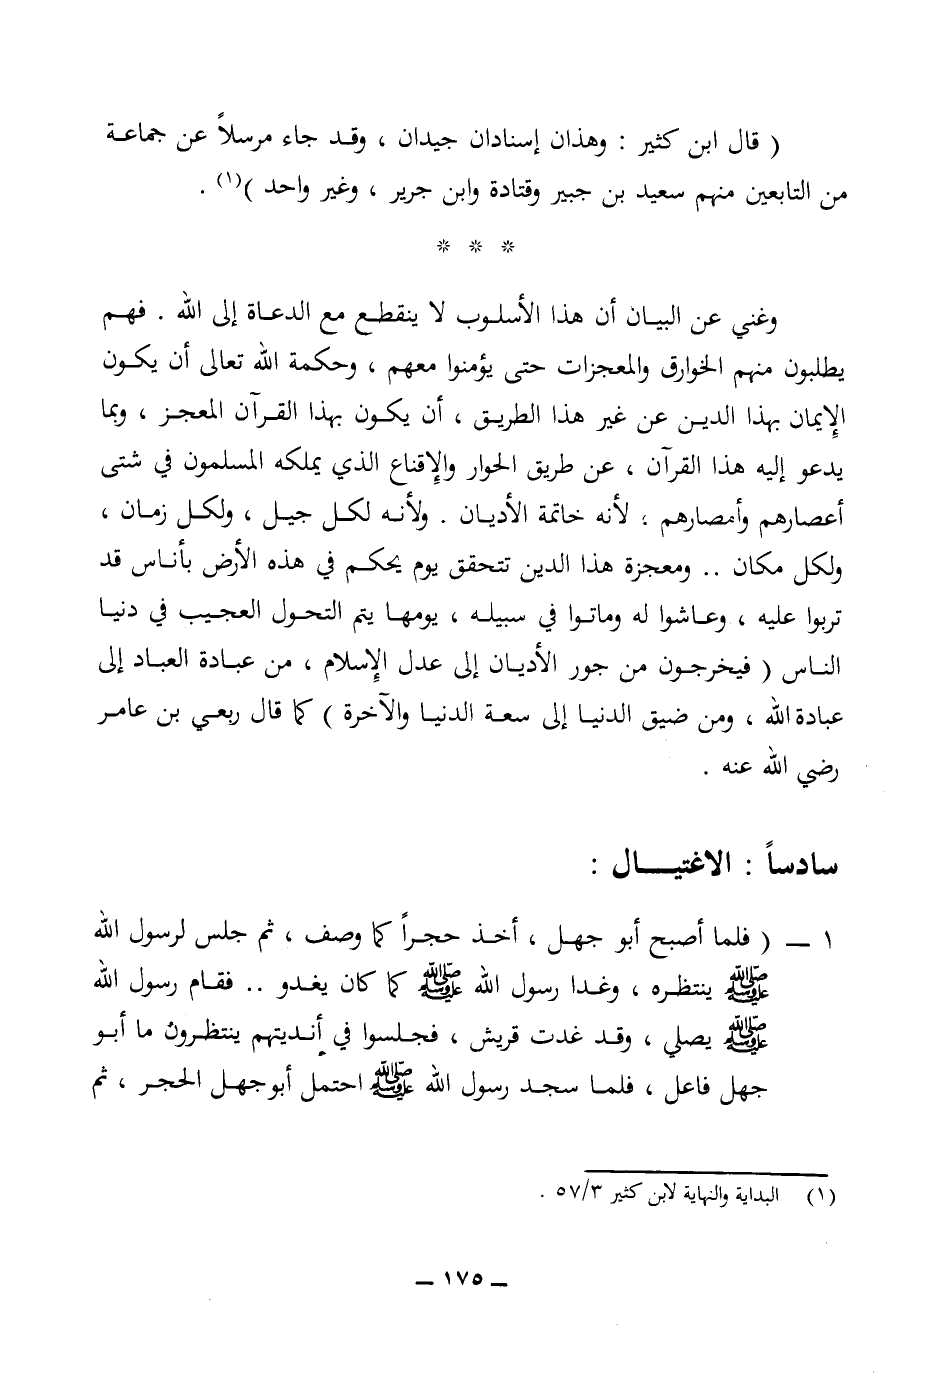 ( قال ابن كثير : وهذان إسنادان جيدان ، وقد جاء مرسلاً عن جماعة
من التابعين منهم سعيد بن جبير وقتادة وابن جرير ، وغير واحد )(١) .
* * *
وغني عن البيان أن هذا الأسلوب لا ينقطع مع الدعاة إلى الله . فهم
يطلبون منهم الخوارق والمعجزات حتى يؤمنوا معهم ، وحكمة الله تعالى أن يكون
الإيمان بهذا الدين عن غير هذا الطريق ، أن يكون بهذا القرآن المعجز ، وبما
يدعو إليه هذا القرآن ، عن طريق الحوار والإقناع الذي يملكه المسلمون في شتى
أعصارهم وأمصارهم ؛ لأنه خاتمة الأديان . ولأنه لكل جيل ، ولكل زمان ،
ولكل مكان .. ومعجزة هذا الدين تتحقق يوم يحكم في هذه الأرض بأناس قد
تربوا عليه ، وعاشوا له وماتوا في سبيله ، يومها يتم التحول العجيب في دنيا
الناس ( فيخرجون من جور الأديان إلى عدل الإسلام ، من عبادة العباد إلى
عبادة الله ، ومن ضيق الدنيا إلى سعة الدنيا والآخرة ) كما قال ربعي بن عامر
رضي الله عنه .
سادساً : الاغتيال :
١ – ( فلما أصبح أبو جهل ، أخذ حجراً كما وصف ، ثم جلس لرسول الله
ﷺ ينتظره ، وغدا رسول الله ﷺ كما كان يغدو .. فقام رسول الله
ﷺ يصلي ، وقد غدت قريش ، فجلسوا في أنديتهم ينتظرون ما أبو
جهل فاعل ، فلما سجد رسول الله ﷺ احتمل أبوجهل الحجر ، ثم
(١) البداية والنهاية لابن كثير ٥٧/٣ .
– ١٧٥ –